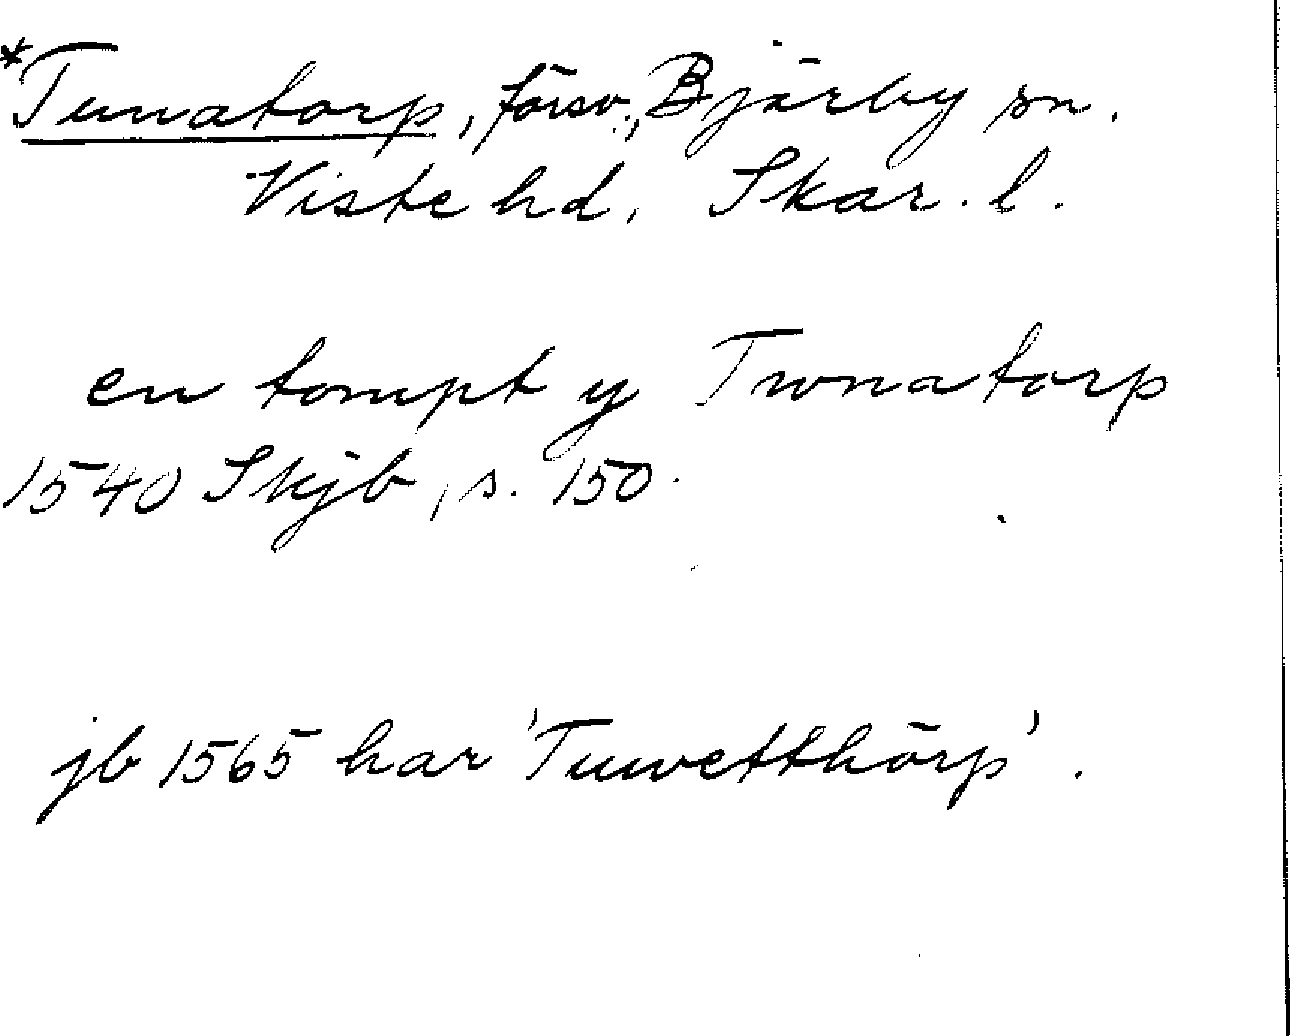 *Tunatorp, försv., Bjärby sn.
Viste hd, Skar. l.
en tompt y Twnatorp
1540 Skjb, s. 150.
jb 1565 har 'Tuwetthörp'.